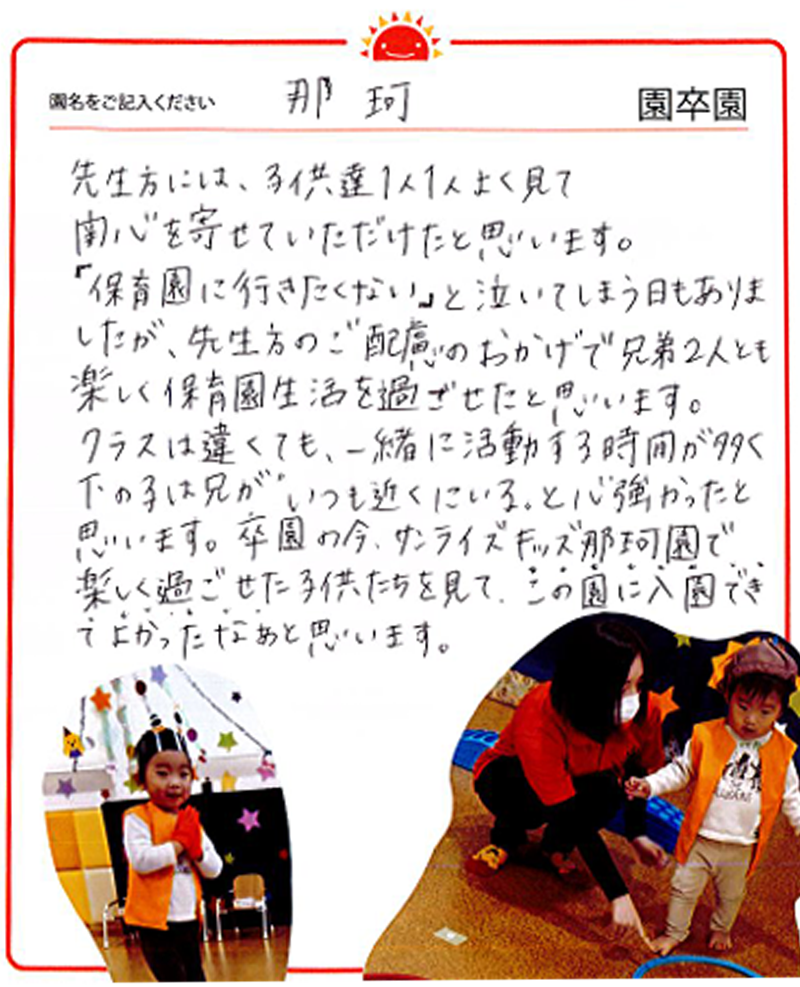 園名をご記入ください 那珂 園卒園
先生方には、子供達1人1人よく見て
関心を寄せていただけたと思います。
『保育園に行きたくない』と泣いてしまう日もありま
したが、先生方のご配慮のおかげで兄弟2人とも
楽しく保育園生活を過ごせたと思います。
クラスは違くても、一緒に活動する時間が多く
下の子は兄が“いつも近くにいる。と心強かったと
思います。卒園の今、サンライズキッズ那珂園で
楽しく過ごせた子供たちを見て、この園に入園でき
てよかったなぁと思います。